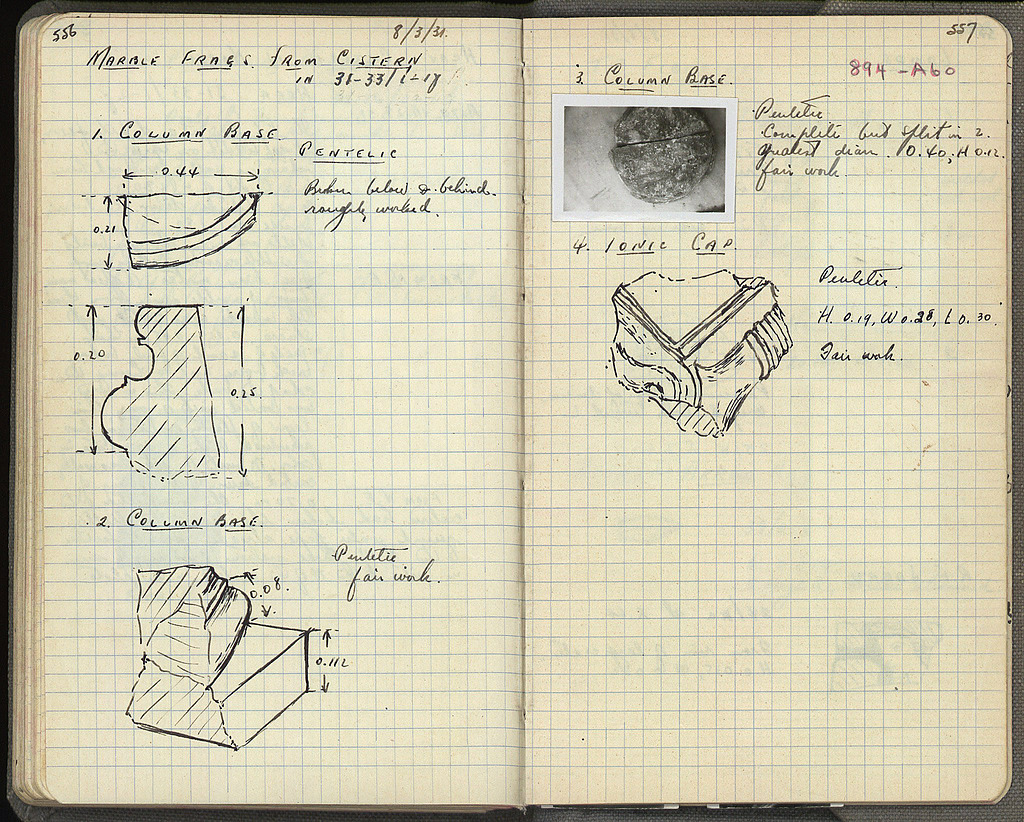 556
8/3/31.
MARBLE FRAGS. FROM CISTERN
IN 31-33/
1. COLUMN BASE.
PENTELIC
0.44
Broken below & behind.
roughly worked.
0.21
0.20
0.25
2. COLUMN BASE.
Pentelic
fair work.
0.08.
0.112
557
894-A60
3. COLUMN BASE.
Pentelic
Complete but split in 2.
greatest diam. 0.40, H 0.12.
fair work
4. IONIC CAP.
Pentelic.
H. 0.19, W 0.28, L 0.30.
Fair work.